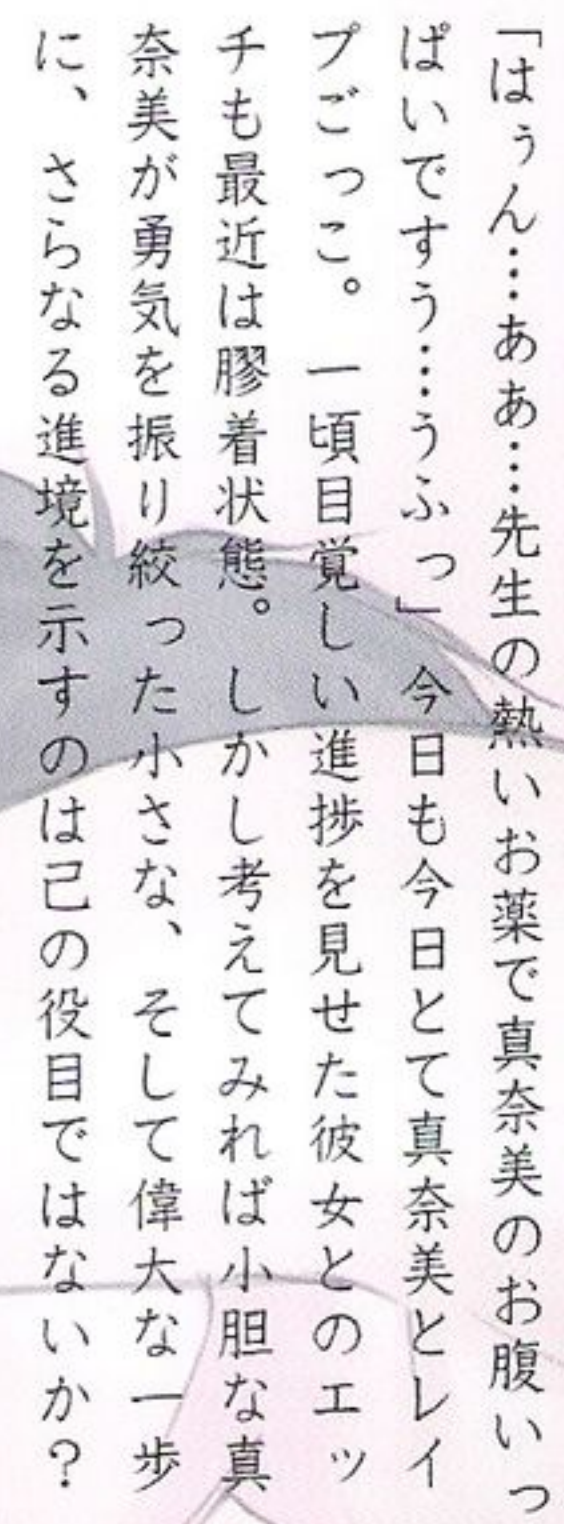 「はぅん…ああ…先生の熱いお薬で真奈美のお腹いっ
ぱいですう…うふっ」今日も今日とて真奈美とレイ
プごっこ。一頃目覚しい進捗を見せた彼女とのエッ
チも最近は膠着状態。しかし考えてみれば小胆な真
奈美が勇気を振り絞った小さな、そして偉大な一歩
に、さらなる進境を示すのは己の役目ではないか？